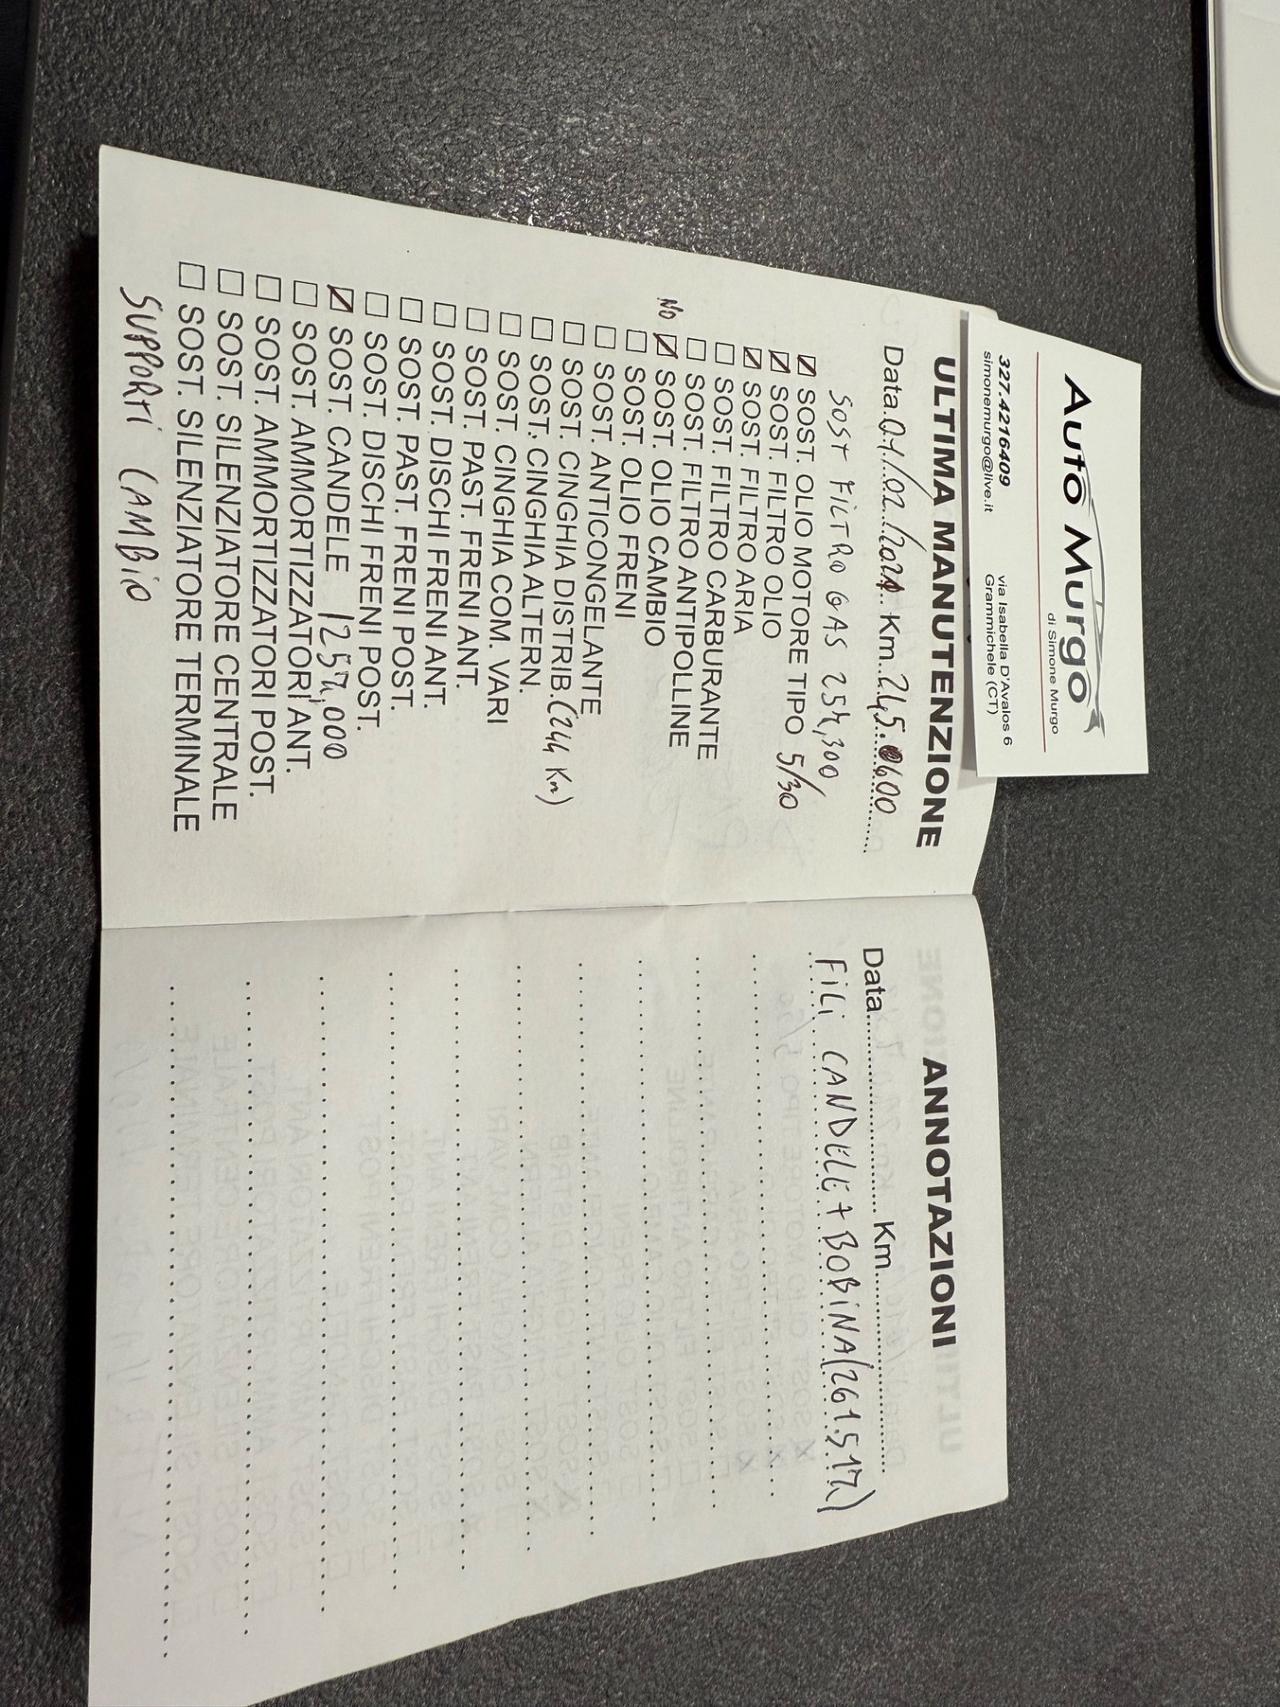 Auto Murgo
di Simone Murgo
327.4216409
simonemurgo@live.it
via Isabella D'Avalos 6
Grammichele (CT)
ULTIMA MANUTENZIONE
Data 01/02/2021 Km 245.600
SOST FILTRO GAS 257,300
SOST. OLIO MOTORE TIPO 5/30
SOST. FILTRO OLIO
SOST. FILTRO ARIA
SOST. FILTRO CARBURANTE
SOST. FILTRO ANTIPOLLINE
NO SOST. OLIO CAMBIO
SOST. OLIO FRENI
SOST. ANTICONGELANTE
SOST. CINGHIA DISTRIB. (244 Km)
SOST. CINGHIA ALTERN.
SOST. CINGHIA COM. VARI
SOST. PAST. FRENI ANT.
SOST. DISCHI FRENI ANT.
SOST. PAST. FRENI POST.
SOST. DISCHI FRENI POST.
SOST. CANDELE 1257,000
SOST. AMMORTIZZATORI ANT.
SOST. AMMORTIZZATORI POST.
SOST. SILENZIATORE CENTRALE
SOST. SILENZIATORE TERMINALE
SUPPORTI CAMBIO
ANNOTAZIONI
Data Km
FILI CANDELE + BOBINA (261.517)